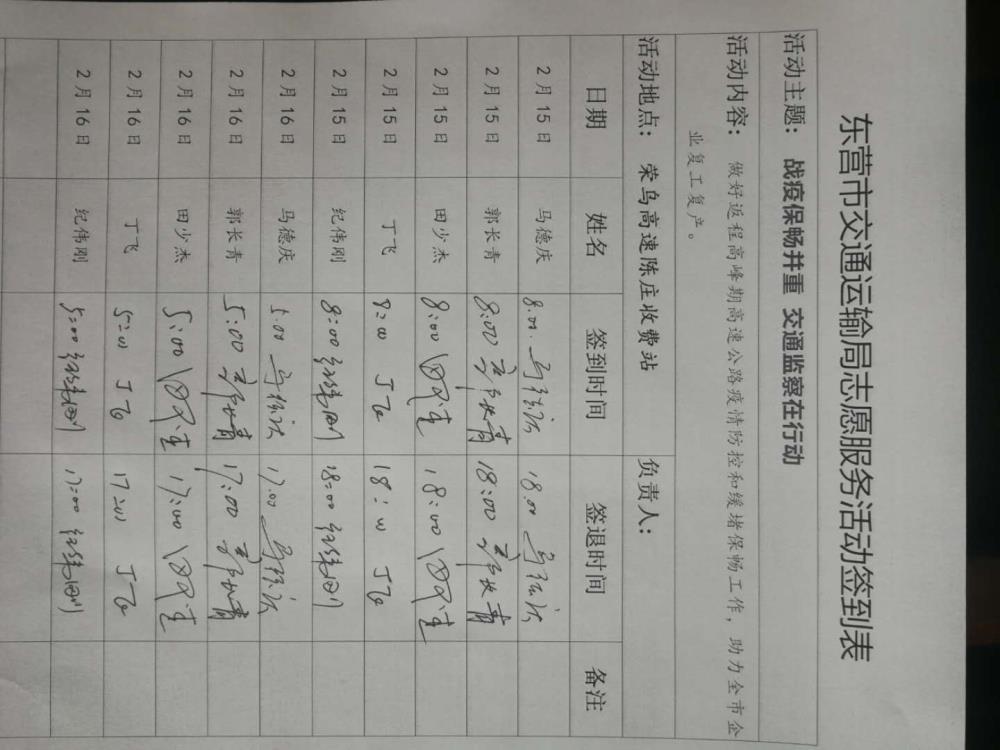 东营市交通运输局志愿服务活动签到表
活动主题： 战疫保畅并重 交通监察在行动
活动内容： 做好返程高峰期高速公路疫情防控和缓堵保畅工作，助力全市企
业复工复产。
活动地点： 荣乌高速陈庄收费站 负责人：
日期 姓名 签到时间 签退时间 备注
2月15日 马德庆 8.00 马德庆 18.00 马德庆
2月15日 郭长青 8:00 郭长青 18:00 郭长青
2月15日 田少杰 8:00 田少杰 18:00 田少杰
2月15日 丁飞 8:00 丁飞 18:00 丁飞
2月15日 纪伟刚 8:00 纪伟刚 18:00 纪伟刚
2月16日 马德庆 5.00 马德庆 17.00 马德庆
2月16日 郭长青 5:00 郭长青 17:00 郭长青
2月16日 田少杰 5:00 田少杰 17:00 田少杰
2月16日 丁飞 5:00 丁飞 17:00 丁飞
2月16日 纪伟刚 5:00 纪伟刚 17:00 纪伟刚